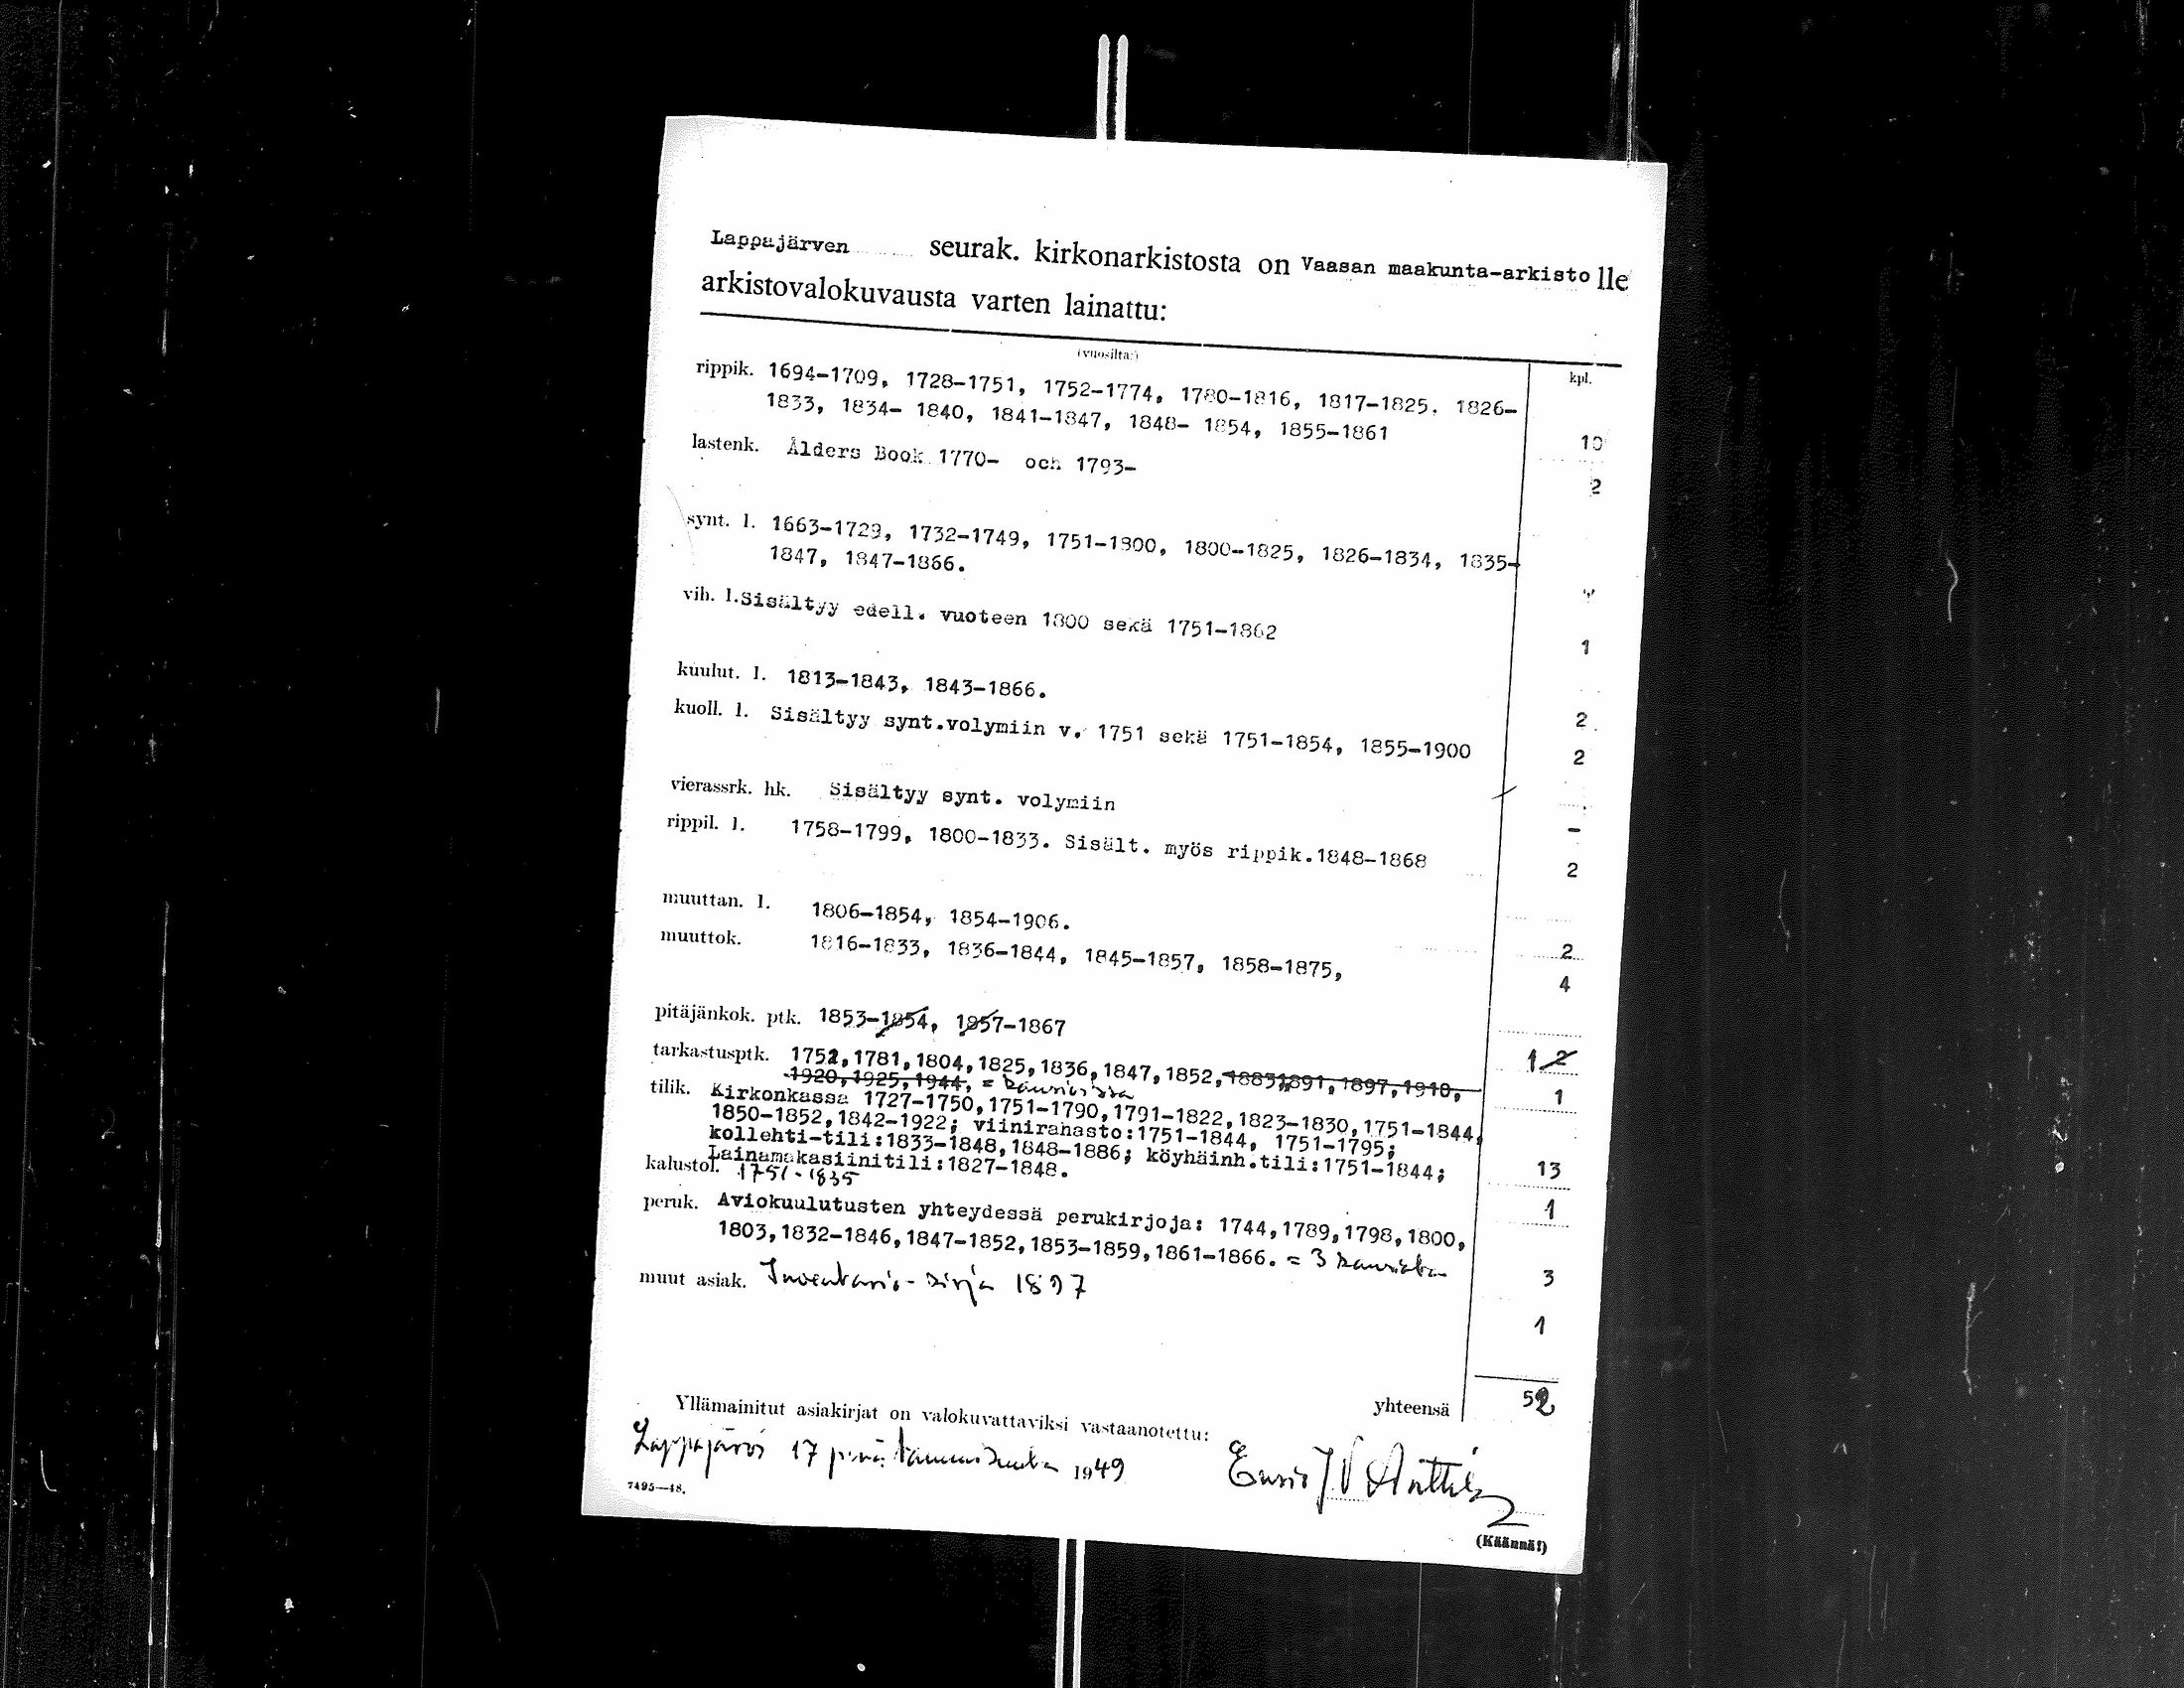 Lappajärven seurak. kirkonarkistosta on Vaasan maakunta-arkisto lle
arkistovalokuvausta varten lainattu:
(vuosilta:) kpl.
rippik. 1694-1709, 1728-1751, 1752-1774, 1780-1816, 1817-1825. 1826-
1833, 1834- 1840, 1841-1847, 1848- 1854, 1855-1861 10
lastenk. Ålders Book 1770- och 1793- 2
synt. l. 1663-1729, 1732-1749, 1751-1800, 1800-1825, 1826-1834, 1835-
1847, 1847-1866.
vih. l. Sisältyy edell. vuoteen 1800 sekä 1751-1862 1
kuulut. l. 1813-1843, 1843-1866. 2
kuoll. l. Sisältyy synt.volymiin v. 1751 sekä 1751-1854, 1855-1900 2
vierassrk. hk. Sisältyy synt. volymiin -
rippil. l. 1758-1799, 1800-1833. Sisält. myös rippik.1848-1868 2
muuttan. l. 1806-1854, 1854-1906. 2
muuttok. 1816-1833, 1836-1844, 1845-1857, 1858-1875, 4
pitäjänkok. ptk. 1853-1854, 1857-1867 1 2
tarkastusptk. 1752,1781,1804,1825,1836,1847,1852,1885,1891,1897,1910,
1920,1925,1944, = 1
tilik. Kirkonkassa 1727-1750,1751-1790,1791-1822,1823-1830,1751-1844,
1850-1852,1842-1922; viinirahasto:1751-1844, 1751-1795;
kollehti-tili:1833-1848,1848-1886; köyhäinh.tili:1751-1844;
Lainamakasiinitili:1827-1848. 13
kalustol. 1751-1835 1
peruk. Aviokuulutusten yhteydessä perukirjoja: 1744,1789,1798,1800,
1803,1832-1846,1847-1852,1853-1859,1861-1866. = 3 3
muut asiak. Inventario-kirja 1897 1
yhteensä 52
Yllämainitut asiakirjat on valokuvattaviksi vastaanotettu:
Lappajärvi 17 päivä tammikuuta 1949
7495—48.
(Käännä!)